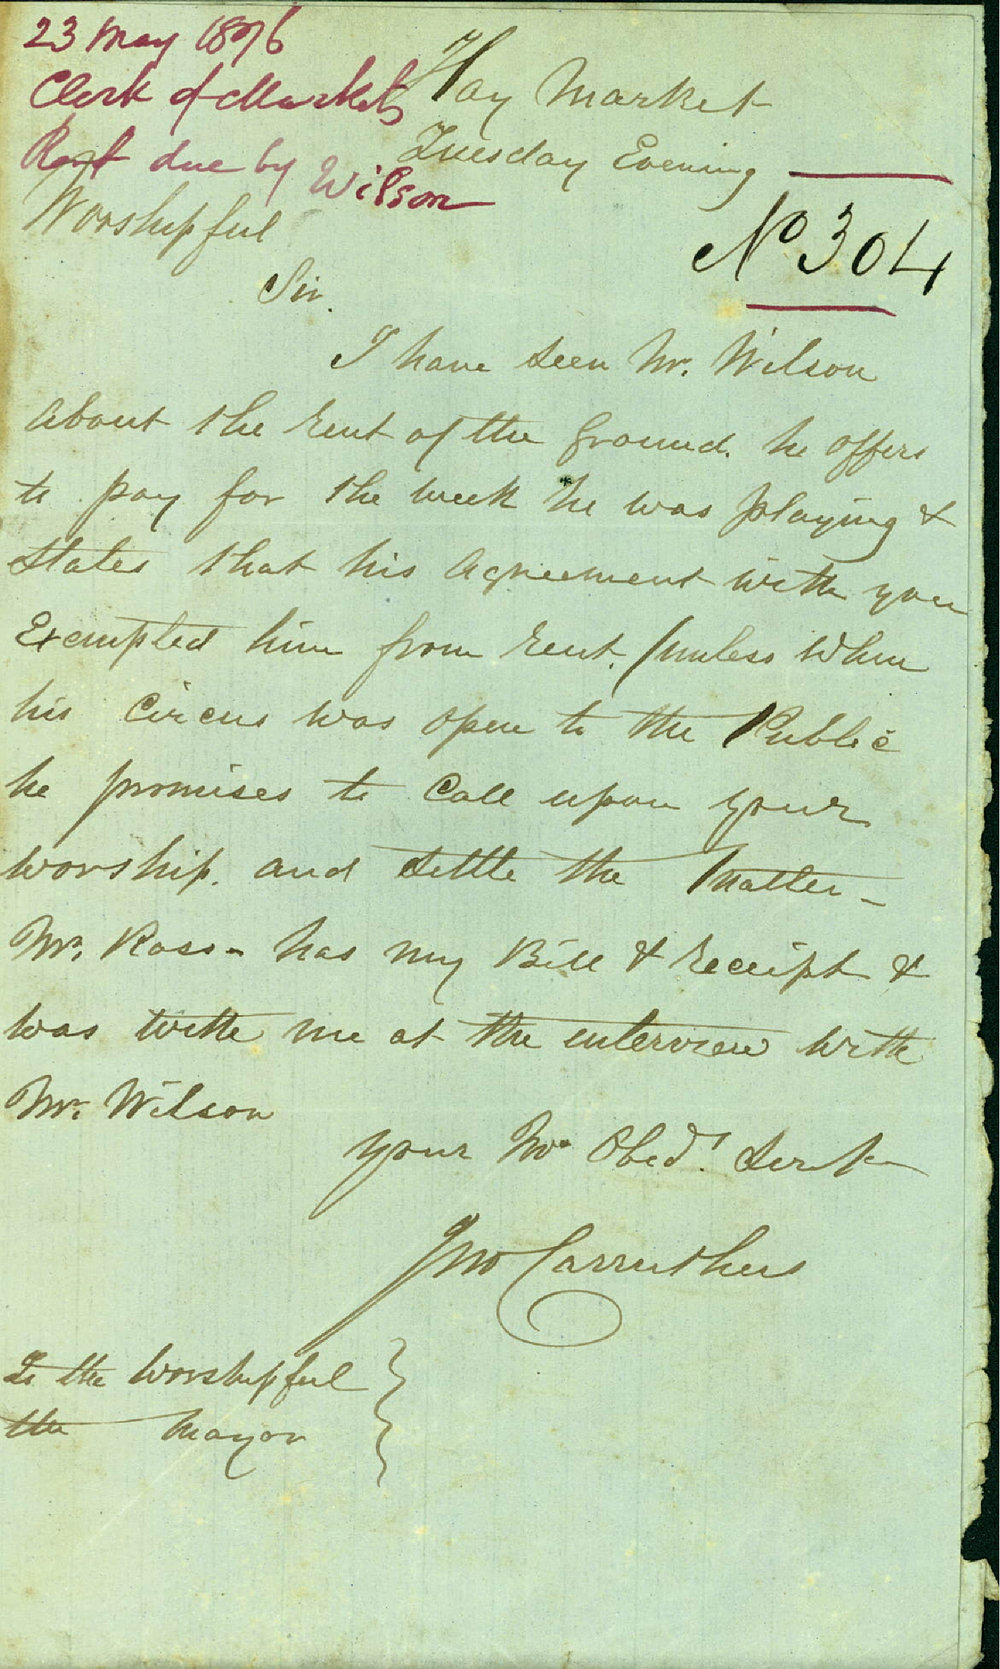 23 May 1876
Clerk of Markets
Rent due by Wilson
Hay Market
Tuesday Evening
No 304
Worshipful
Sir.
I have seen Mr. Wilson
about the rent of the ground. he offers
to pay for the week he was playing &
states that his Agreement with you
Exempted him from rent. (unless when
his Circus was open to the Public
he promises to Call upon your
worship. and settle the Matter -
Mr. Ross - has my Bill & receipt &
was with me at the interview with
Mr. Wilson
your Mo Obedt. Servt
Jno Carruthers
To the Worshipful
the Mayor